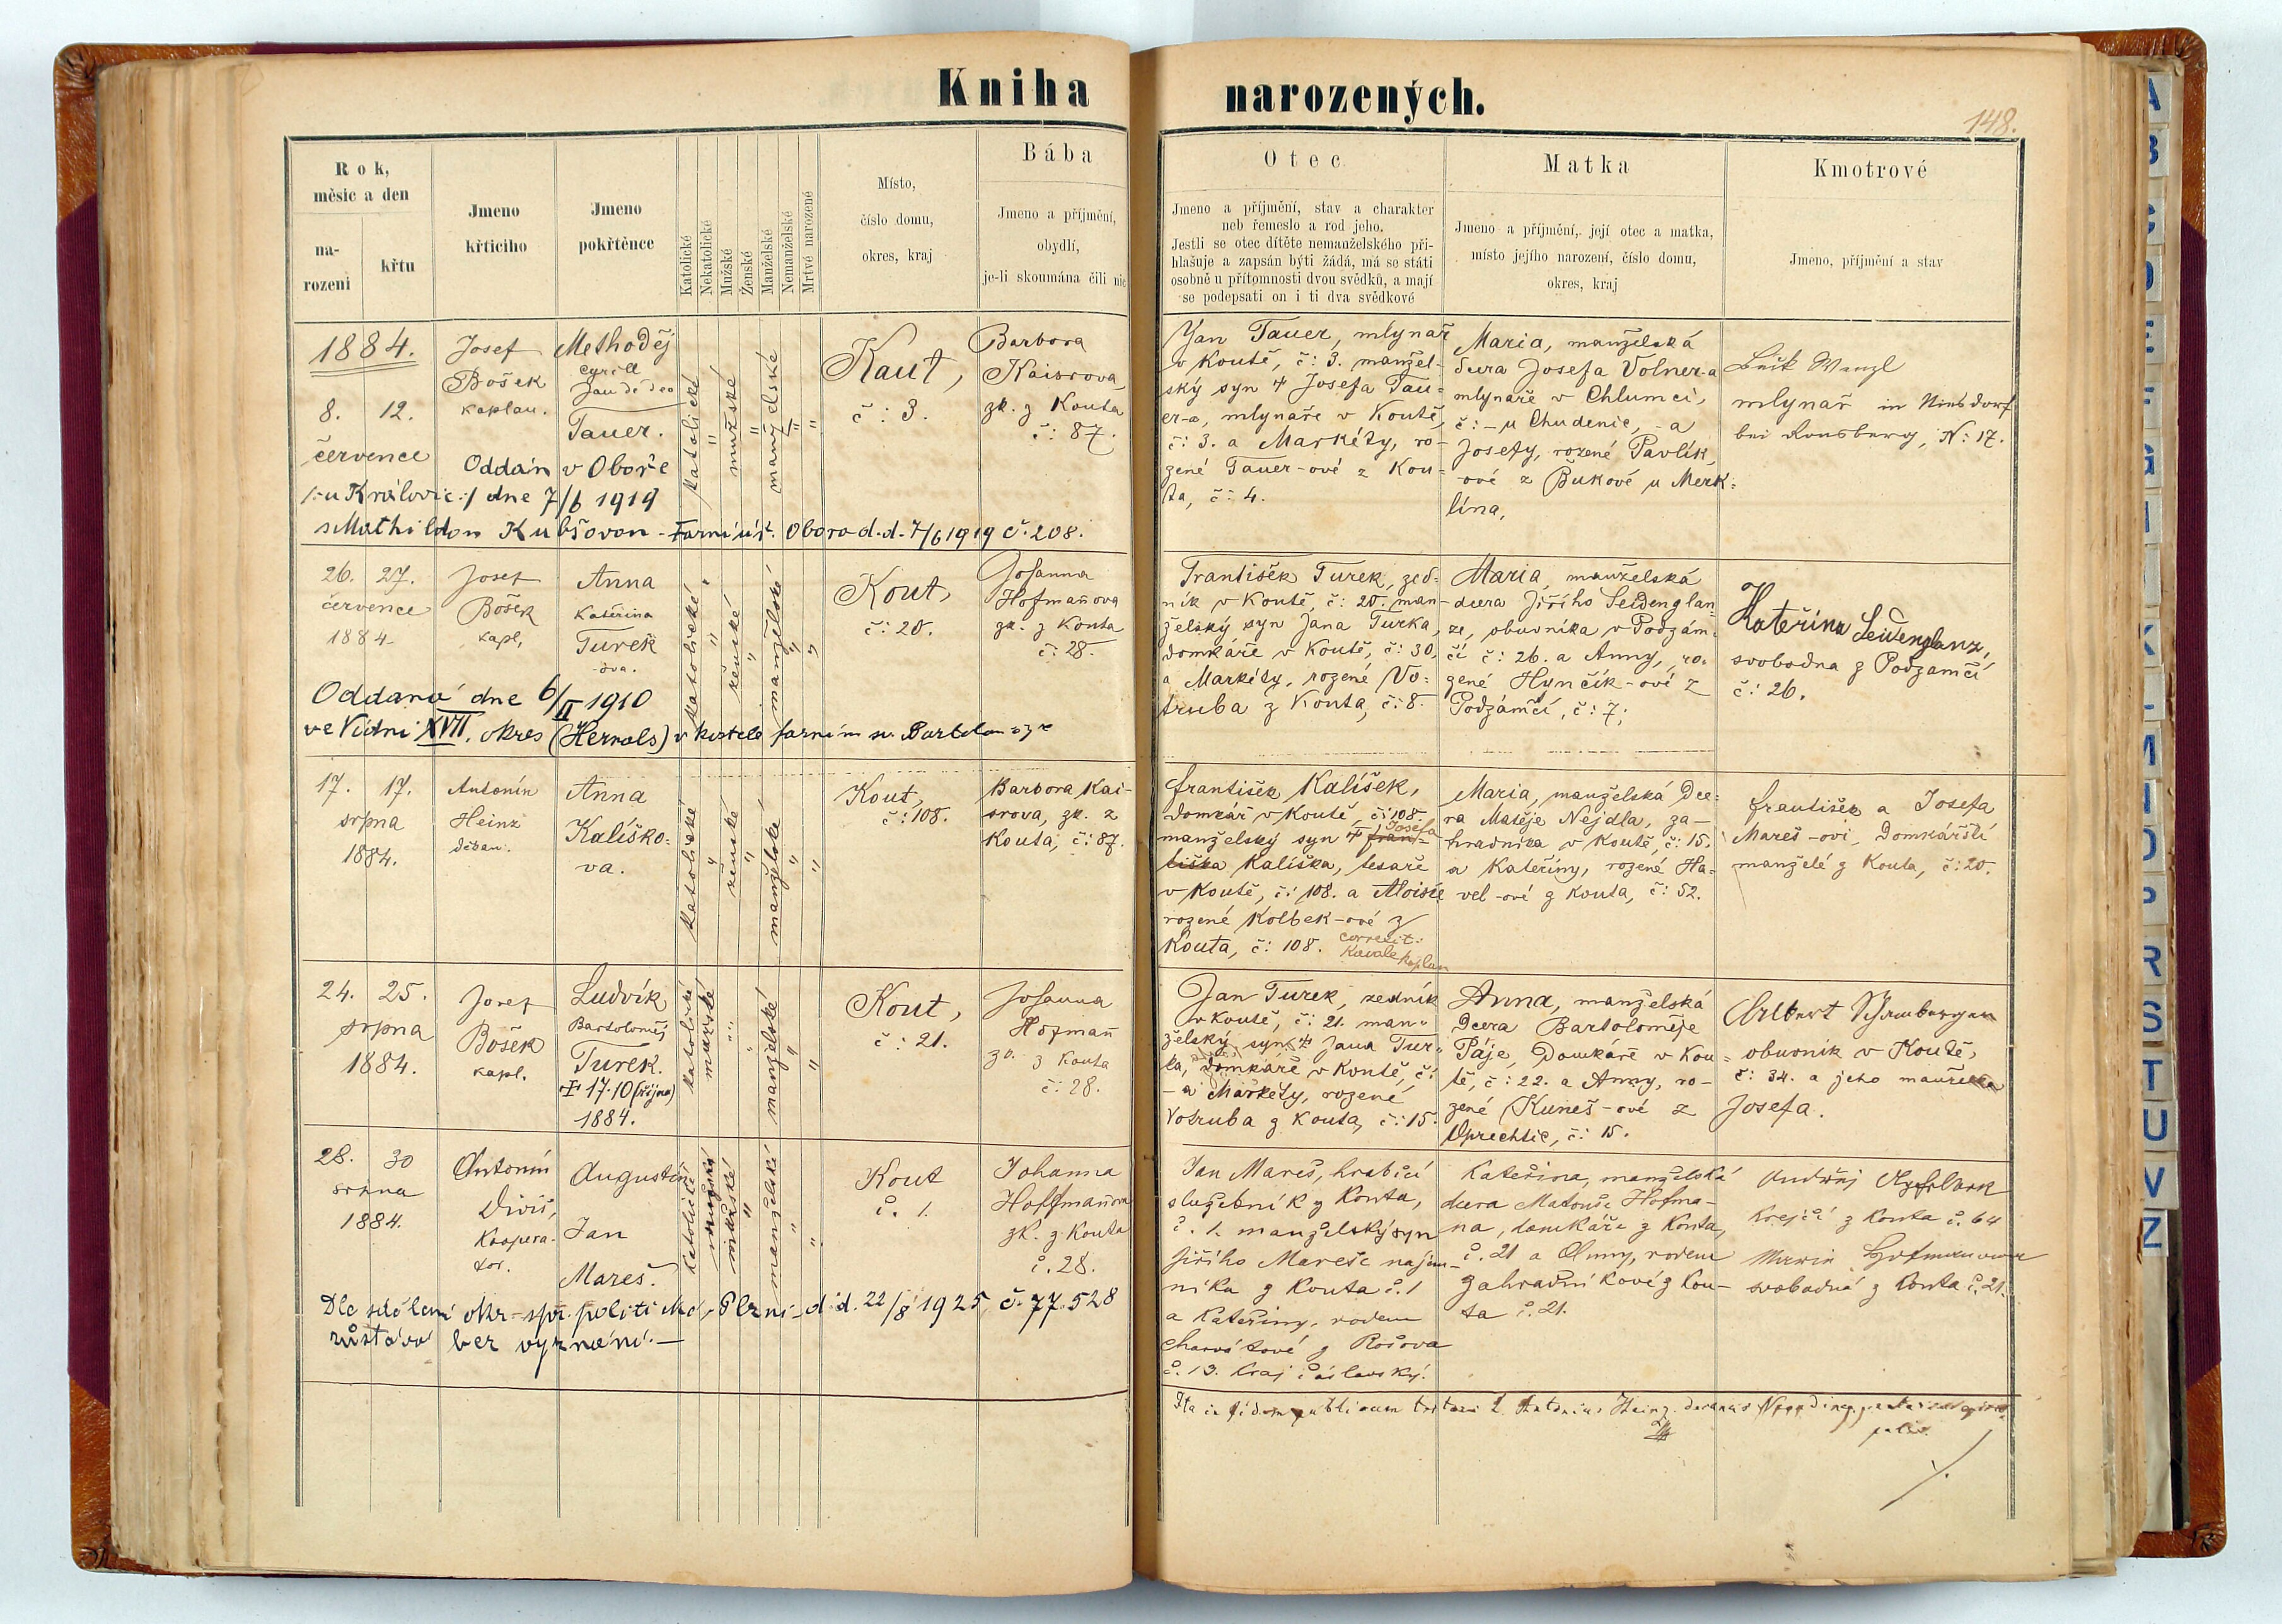 Kniha narozených.
148.
Rok,
měsíc a den
na-
rozeni
křtu
Jmeno
křticiho
Jmeno
pokřtěnce
Katolické
Nekatolické
Mužské
Ženské
Manželské
Nemanželské
Mrtvé narozené
Místo,
číslo domu,
okres, kraj
Bába
Jmeno a příjmění,
obydlí,
je-li skoumána čili nic
Otec
Jmeno a příjmění, stav a charakter
neb řemeslo a rod jeho.
Jestli se otec dítěte nemanželského při-
hlašuje a zapsán býti žádá, má se státi
osobně u přítomnosti dvou svědků, a mají
se podepsati on i ti dva svědkové
Matka
Jmeno a příjmění, její otec a matka,
místo jejího narození, číslo domu,
okres, kraj
Kmotrové
Jmeno, příjmění a stav
1884.
8. 12.
července
Josef
Bošek
kaplan.
Methoděj
Cyrill
Tauer.
katolické
mužské
manželské
Kaut,
č: 3.
Barbora
Kaisrova
zk. z Kouta
č: 87.
Jan Tauer, mlynař
v Koutě, č: 3. manžel-
ský syn † Josefa Tau-
er-a, mlynaře v Koutě,
č: 3. a Markéty, ro-
zené Tauer-ové z Kou-
ta, č: 4.
Maria, manželská
dcera Josefa Volner-a
mlynaře v Chlumci,
č: - u Chudenic, a
Josefy, rozené Pavlík-
-ové z Bukové u Merk-
lína,
Wenzl
mlynař in
bei Ronsberg, N: 17.
Oddán v Oboře
/:u Kralovic:/ dne 7/6 1919
s Mathildou Kubšovou - Farní úř. Obora d.d. 7/6 1919 č. 208.
26. 27.
července
1884.
Josef
Bošek
kapl,
Anna
Kateřina
Turek
-ova.
katolické
ženské
manželské
Kout,
č: 20.
Johanna
Hofmaňova
zk. z Kouta
č: 28.
František Turek, zed-
ník v Koutě, č: 20. man-
želský syn Jana Turka,
domkáře v Koutě, č: 30,
a Markéty, rozené Vo-
truba z Kouta, č: 8.
Maria, manželská
dcera Jiřího Seidenglan-
ze, obuvníka v Podzám-
čí č: 26. a Anny, ro-
zené Hynčík-ové z
Podzámčí, č: 7;
Kateřina Seidenglanz,
svobodna z Podzamčí
č: 26.
Oddaná dne 6/II 1910
ve Vídni XVII. okres (Hernals) v kostele farním sv. Bartoloměje
17. 17.
srpna
1884.
Antonín
Heinz
děkan.
Anna
Kalíško-
va.
katolické
ženské
manželské
Kout,
č: 108.
Barbora Kai-
srova, zk. z
Kouta, č: 87.
František Kalíšek,
domkář v Koutě, č: 108.
Josefa
manželský syn † Fran-
tiška Kalíška, tesaře
v Koutě, č: 108. a Aloisie
rozené Kolbek-ové z
Kouta, č: 108. correxit:
Kovale kaplan
Maria, manželská Dce-
ra Matěje Nejdla, za-
hradníka v Koutě, č: 15.
a Kateřiny, rozené Ha-
vel-ové z Kouta, č: 52.
František a Josefa
Mareš-ovi, Domkářští
manželé z Kouta, č: 20.
24. 25.
srpna
1884.
Josef
Bošek
kapl.
Ludvík
Bartoloměj
Turek.
† 17.10 (října)
1884.
katolické
mužské
manželské
Kout,
č: 21.
Johanna
Hofmaň
z Kouta
č: 28.
Jan Turek, zedník
v Koutě, č: 21. man-
želský syn † Jana Tur-
ka, domkáře v Koutě, č:
- a Markéty, rozené
Votruba z Kouta, č: 15.
Anna, manželská
Dcera Bartoloměje
Páje, Domkáře v Kou-
tě, č: 22. a Anny, ro-
zené Kuneš-ové z
Oprechtic, č: 15.
obuvník v Koutě,
č: 34. a jeho manželka
Josefa.
28. 30
srpna
1884.
Antonín
Diviš,
Koopera-
tor.
Augustin
Jan
Mareš.
katolické
mužské
mužské
manželské
Kout
č. 1.
Johanna
Hoffmaňova
zk. z Kouta
č. 28.
Jan Mareš, hraběcí
služebník z Kouta,
č. 1. manželský syn
Jiřího Mareše nájem-
níka z Kouta č. 1
a Kateřiny, rodem
z Rošova
č. 13. kraj čáslavský.
Kateřina, manželská
dcera Matouše Hofma-
na, domkáře z Kouta,
č. 21 a Anny, rodem
Zahradníkové z Kou-
ta č. 21.
Ondřej
Krejčí z Kouta č. 64
Marie Hofmanova
svobodná z Kouta č. 21.
Dle sdělení okr. spr. politické v Plzni d.d. 22/8 1925, č. 77.528
zůstává bez vyznání.-
Ita in fidem publicam testatur Antonius Heinz decanus